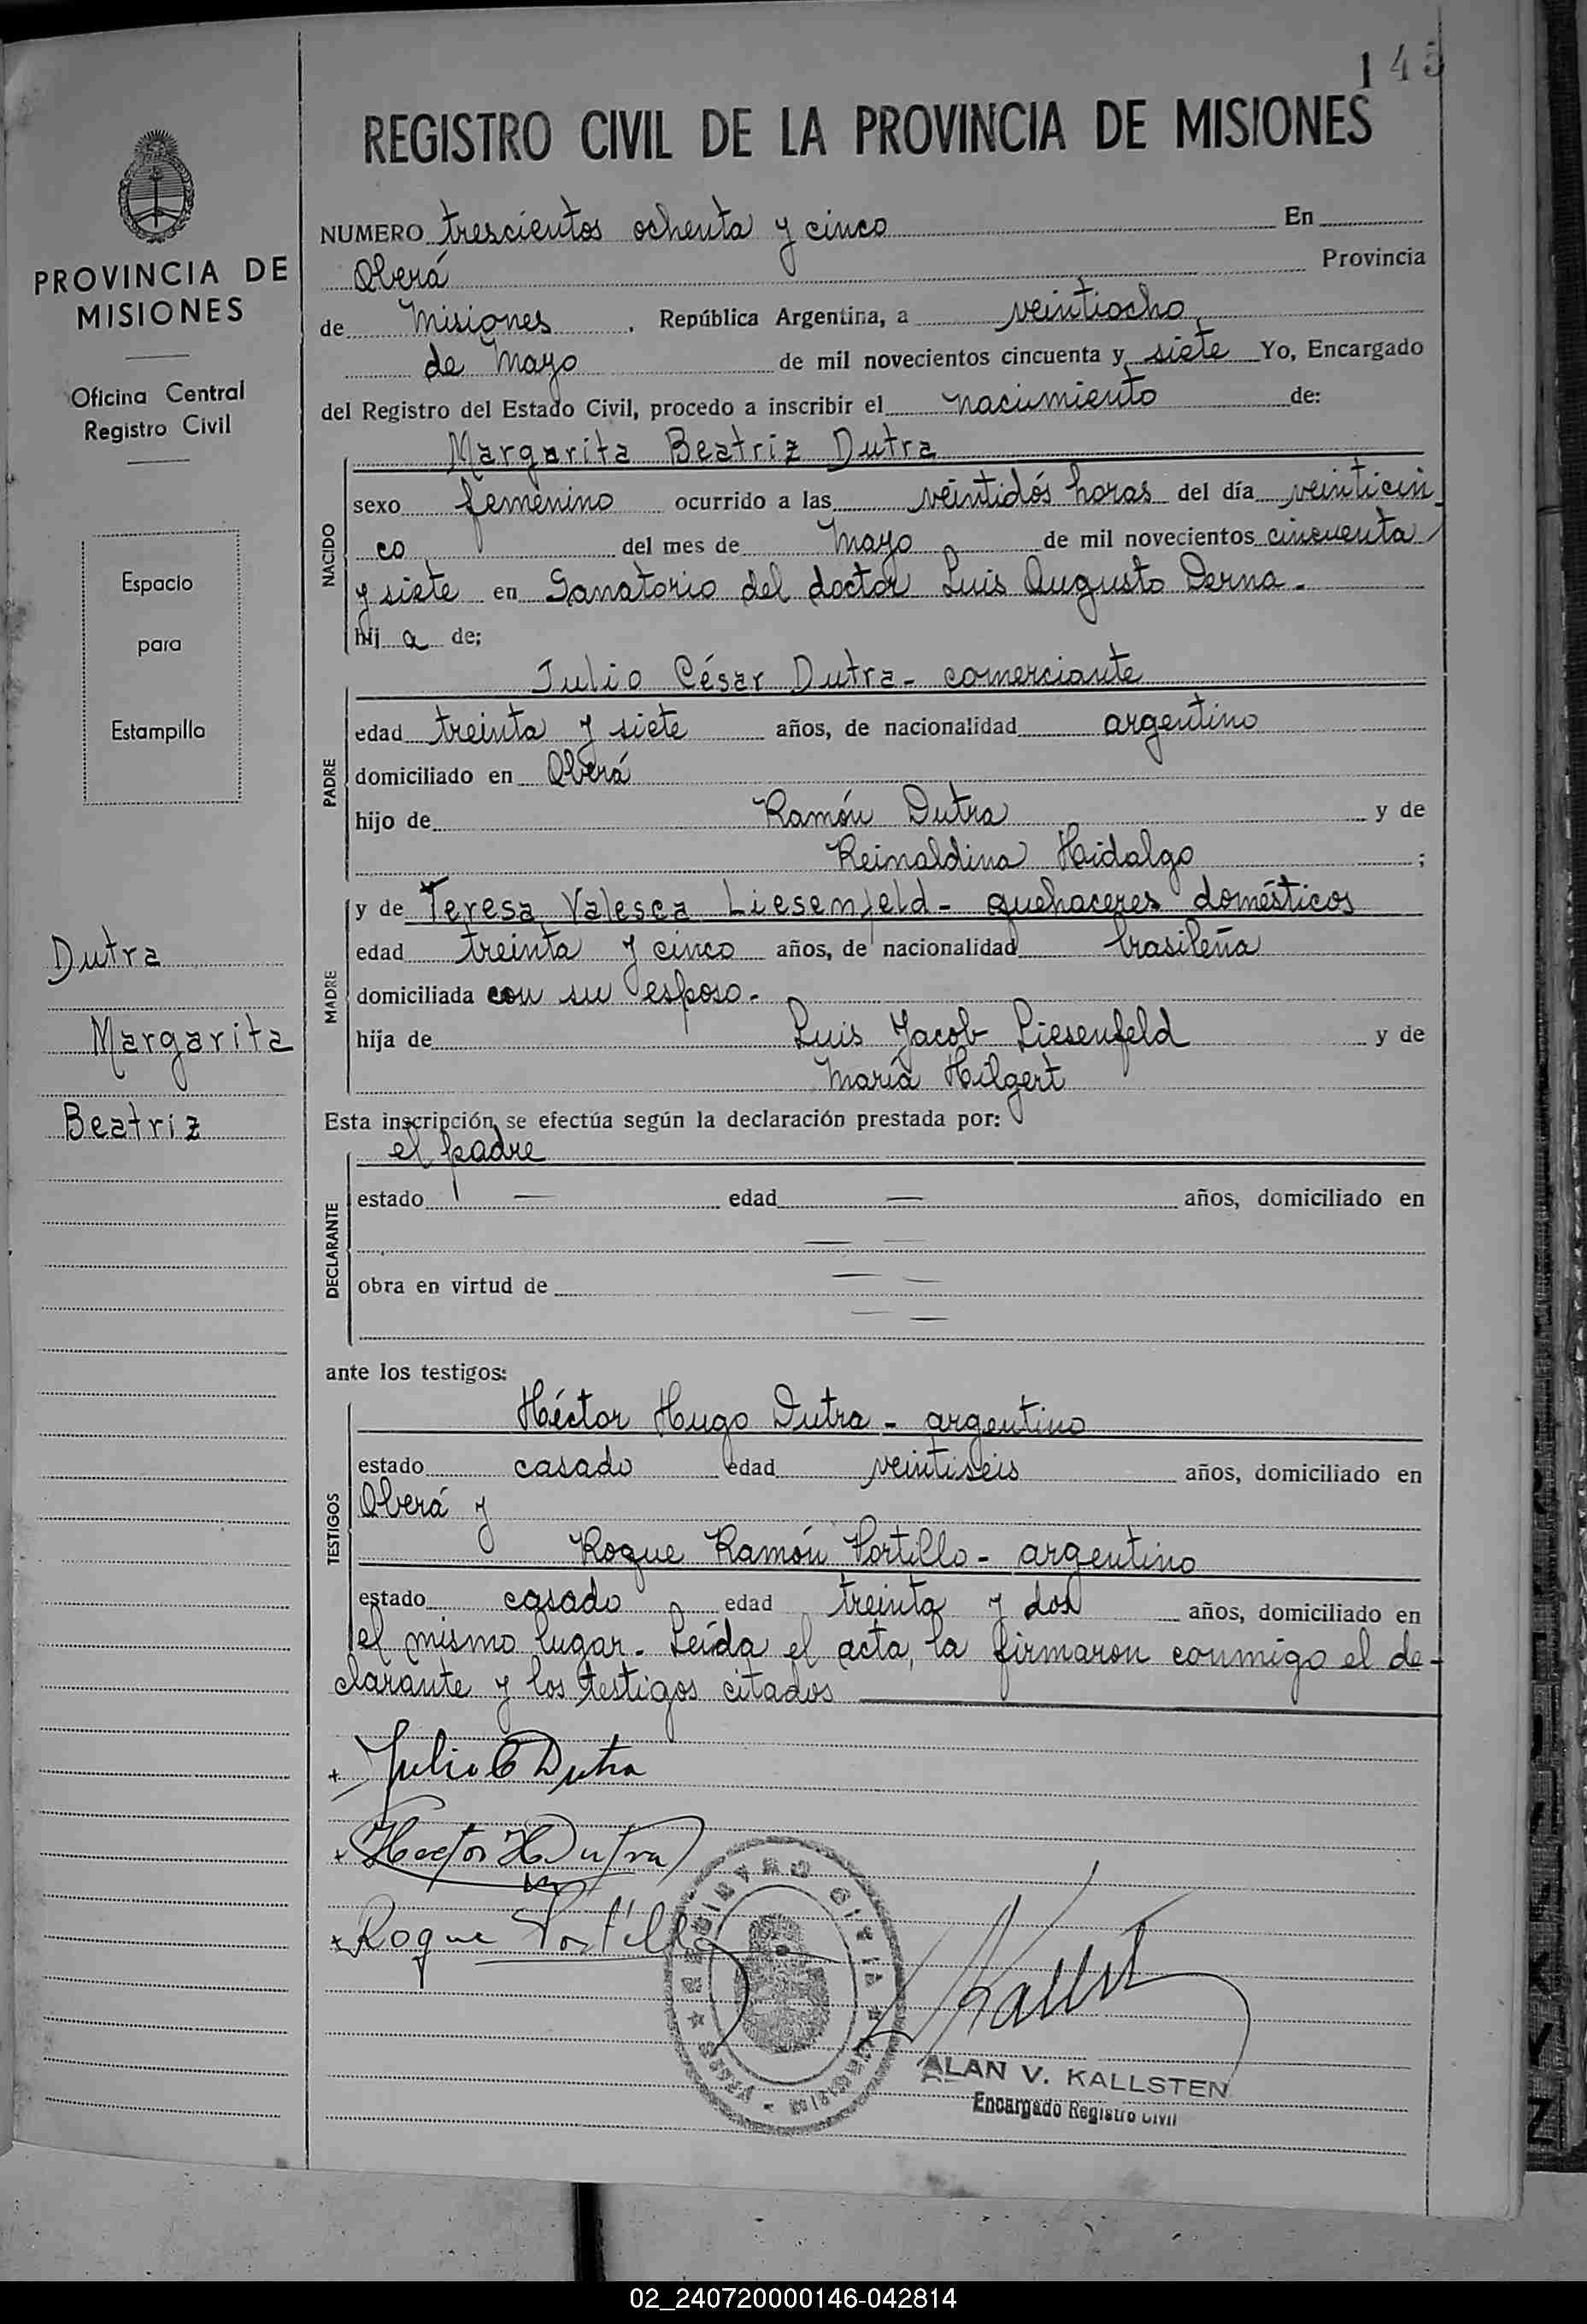 145
REGISTRO CIVIL DE LA PROVINCIA DE MISIONES
PROVINCIA DE
MISIONES
Oficina Central
Registro Civil
Espacio
para
Estampilla
Dutra
Margarita
Beatriz
NUMERO trescientos ochenta y cinco En
Oberá Provincia
de Misiones . República Argentina, a veintiocho
de Mayo de mil novecientos cincuenta y siete Yo, Encargado
del Registro del Estado Civil, procedo a inscribir el nacimiento de:
NACIDO
Margarita Beatriz Dutra
sexo femenino ocurrido a las veintidós horas del día veinticin
co del mes de Mayo de mil novecientos cincuenta
y siete en Sanatorio del doctor Luis Augusto Derna.
hij a de;
PADRE
Julio César Dutra - comerciante
edad treinta y siete años, de nacionalidad argentino
domiciliado en Oberá
hijo de Ramón Dutra y de
Reinaldina Hidalgo ;
MADRE
y de Teresa Valesca Liesenfeld - quehaceres domésticos
edad treinta y cinco años, de nacionalidad brasileña
domiciliada con su esposo.
hija de Luis Jacob Liesenfeld y de
María Hilgert
Esta inscripción se efectúa según la declaración prestada por:
DECLARANTE
el padre
estado — edad — años, domiciliado en
— —
obra en virtud de — —
— —
ante los testigos:
TESTIGOS
Héctor Hugo Dutra - argentino
estado casado edad veintiseis años, domiciliado en
Oberá y
Roque Ramón Portillo - argentino
estado casado edad treinta y dos años, domiciliado en
el mismo lugar. Leída el acta, la firmaron conmigo el de-
clarante y los testigos citados
+ Julio C Dutra
+ Hector H Dutra
+ Roque Portillo
REGISTRO CIVIL
Kallst
ALAN V. KALLSTEN
Encargado Registro Civil
02_240720000146-042814